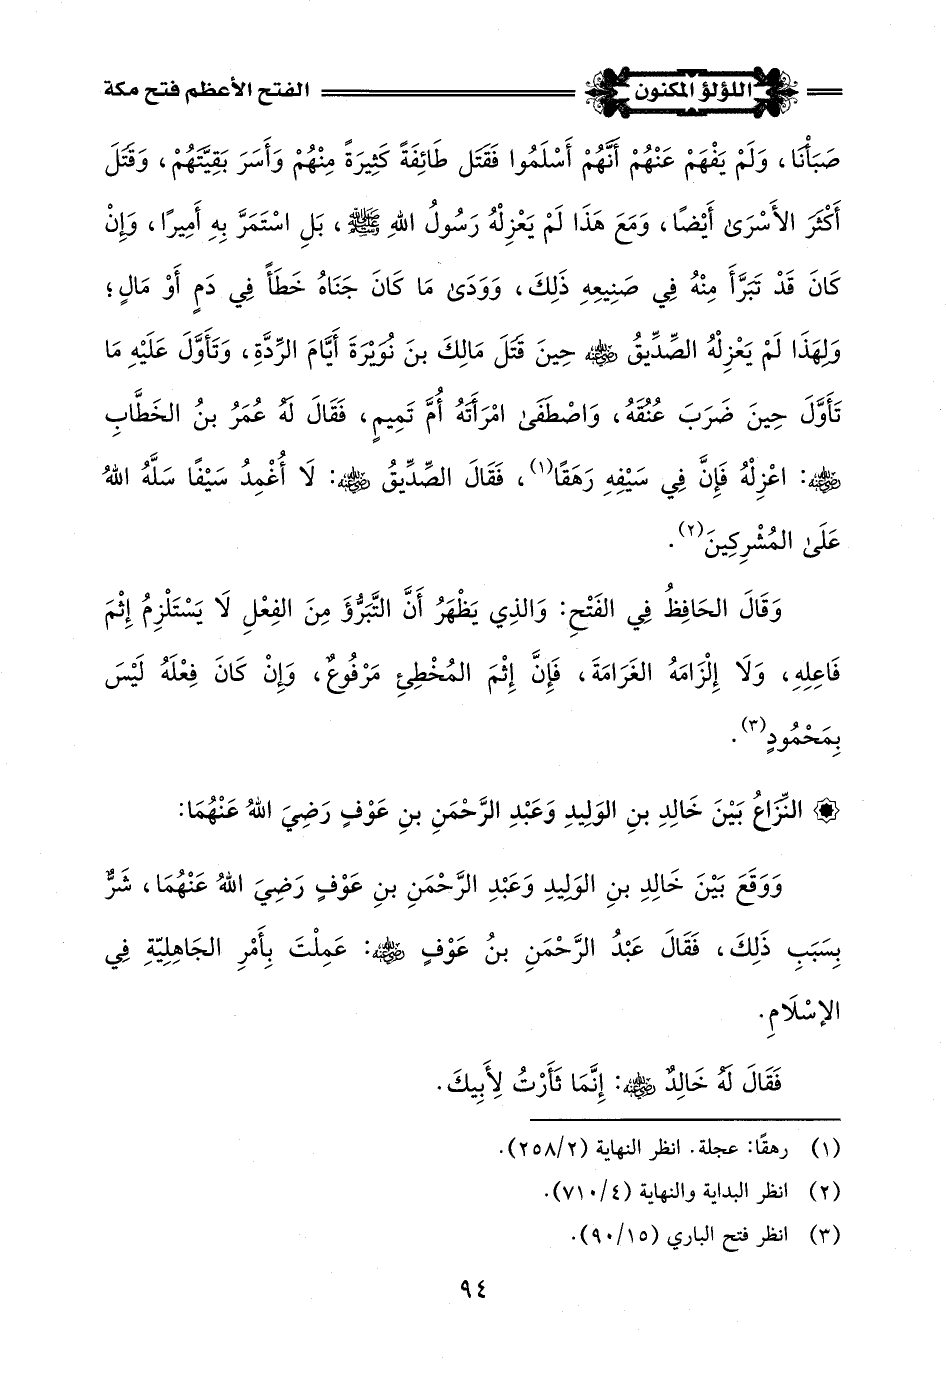 اللؤلؤ المكنون
الفتح الأعظم فتح مكة
صَبَأْنَا، وَلَمْ يَفْهَمْ عَنْهُمْ أَنَّهُمْ أَسْلَمُوا فَقَتَل طَائِفَةً كَثِيرَةً مِنْهُمْ وَأَسَرَ بَقِيَّتَهُمْ، وَقَتَلَ
أَكْثَرَ الأَسْرَىٰ أَيْضًا، وَمَعَ هَذَا لَمْ يَعْزِلْهُ رَسُولُ اللهِ ﷺ، بَلِ اسْتَمَرَّ بِهِ أَمِيرًا، وَإِنْ
كَانَ قَدْ تَبَرَّأَ مِنْهُ فِي صَنِيعِهِ ذَلِكَ، وَوَدَىٰ مَا كَانَ جَنَاهُ خَطَأً فِي دَمٍ أَوْ مَالٍ؛
وَلِهَذَا لَمْ يَعْزِلْهُ الصِّدِّيقُ رضي الله عنه حِينَ قَتَلَ مَالِكَ بنَ نُوَيْرَةَ أَيَّامَ الرِّدَّةِ، وَتَأَوَّلَ عَلَيْهِ مَا
تَأَوَّلَ حِينَ ضَرَبَ عُنُقَهُ، وَاصْطَفَىٰ امْرَأَتَهُ أُمَّ تَمِيمٍ، فَقَالَ لَهُ عُمَرُ بنُ الخَطَّابِ
رضي الله عنه: اعْزِلْهُ فَإِنَّ فِي سَيْفِهِ رَهَقًا(١)، فَقَالَ الصِّدِّيقُ رضي الله عنه: لَا أُغْمِدُ سَيْفًا سَلَّهُ اللهُ
عَلَىٰ المُشْرِكِينَ(٢).
وَقَالَ الحَافِظُ فِي الفَتْحِ: وَالذِي يَظْهَرُ أَنَّ التَّبَرُّؤَ مِنَ الفِعْلِ لَا يَسْتَلْزِمُ إِثْمَ
فَاعِلِهِ، وَلَا إِلْزَامَهُ الغَرَامَةَ، فَإِنَّ إِثْمَ المُخْطِئِ مَرْفُوعٌ، وَإِنْ كَانَ فِعْلُهُ لَيْسَ
بِمَحْمُودٍ(٣).
النِّزَاعُ بَيْنَ خَالِدِ بنِ الوَلِيدِ وَعَبْدِ الرَّحْمَنِ بنِ عَوْفٍ رَضِيَ اللهُ عَنْهُمَا:
وَوَقَعَ بَيْنَ خَالِدِ بنِ الوَلِيدِ وَعَبْدِ الرَّحْمَنِ بنِ عَوْفٍ رَضِيَ اللهُ عَنْهُمَا، شَرٌّ
بِسَبَبِ ذَلِكَ، فَقَالَ عَبْدُ الرَّحْمَنِ بنُ عَوْفٍ رضي الله عنه: عَمِلْتَ بِأَمْرِ الجَاهِلِيّةِ فِي
الإِسْلَامِ.
فَقَالَ لَهُ خَالِدٌ رضي الله عنه: إِنَّمَا ثَأَرْتُ لِأَبِيكَ.
(١) رهقًا: عجلة. انظر النهاية (٢/ ٢٥٨).
(٢) انظر البداية والنهاية (٤/ ٧١٠).
(٣) انظر فتح الباري (١٥/ ٩٠).
٩٤